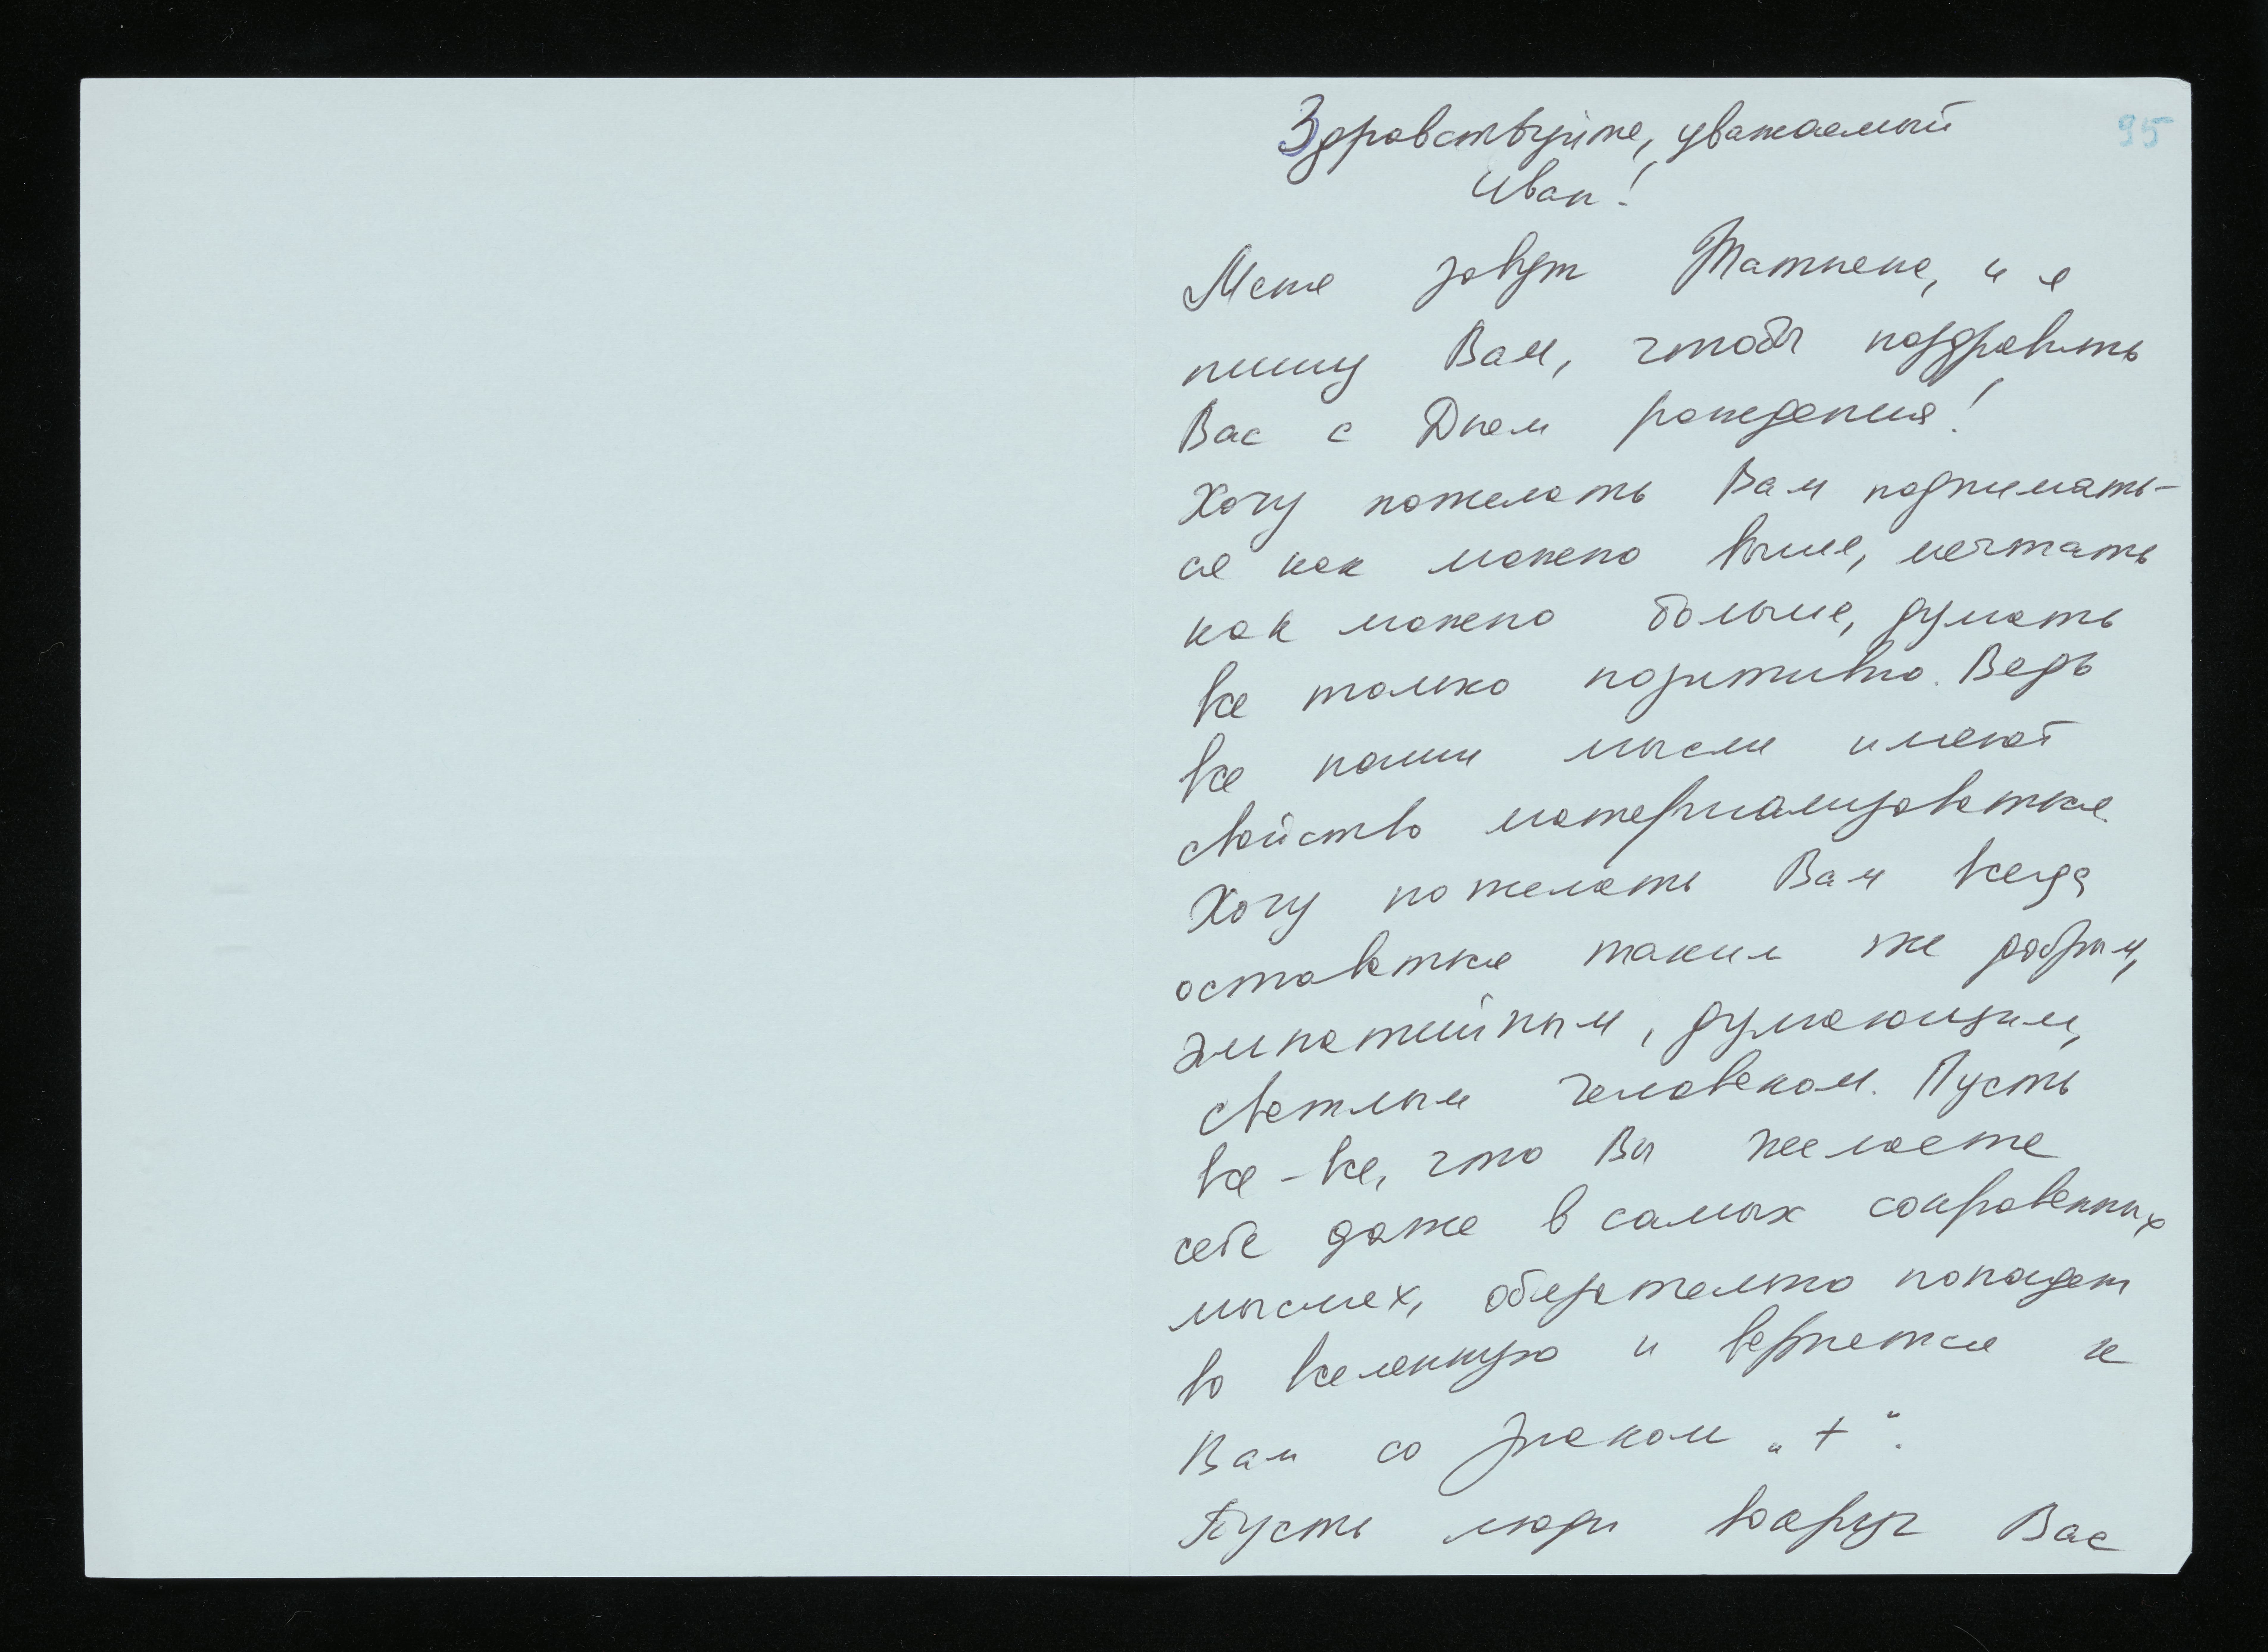 95
Здравствуйте, уважаемый
Иван!
Меня зовут Татьяна, и я
пишу Вам, чтобы поздравить
Вас с Днем рождения!
Хочу пожелать Вам поднимать-
ся как можно выше, мечтать
как можно больше, думать
все только позитивно. Ведь
все наши мысли имеют
свойство материализоваться.
Хочу пожелать Вам всегда
оставаться таким же добрым,
эмпатийным, думающим,
светлым человеком. Пусть
все-все, что Вы желаете
себе даже в самых сокровенных
мыслях, обязательно попадет
во вселенную и вернется к
Вам со знаком „+“.
Пусть люди вокруг Вас